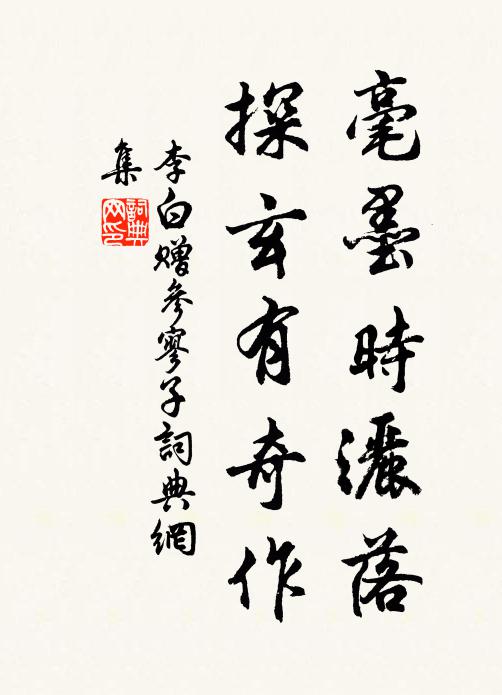 毫墨時灑落
探玄有奇作
李白贈參寥子詞典網
集
詞典网印